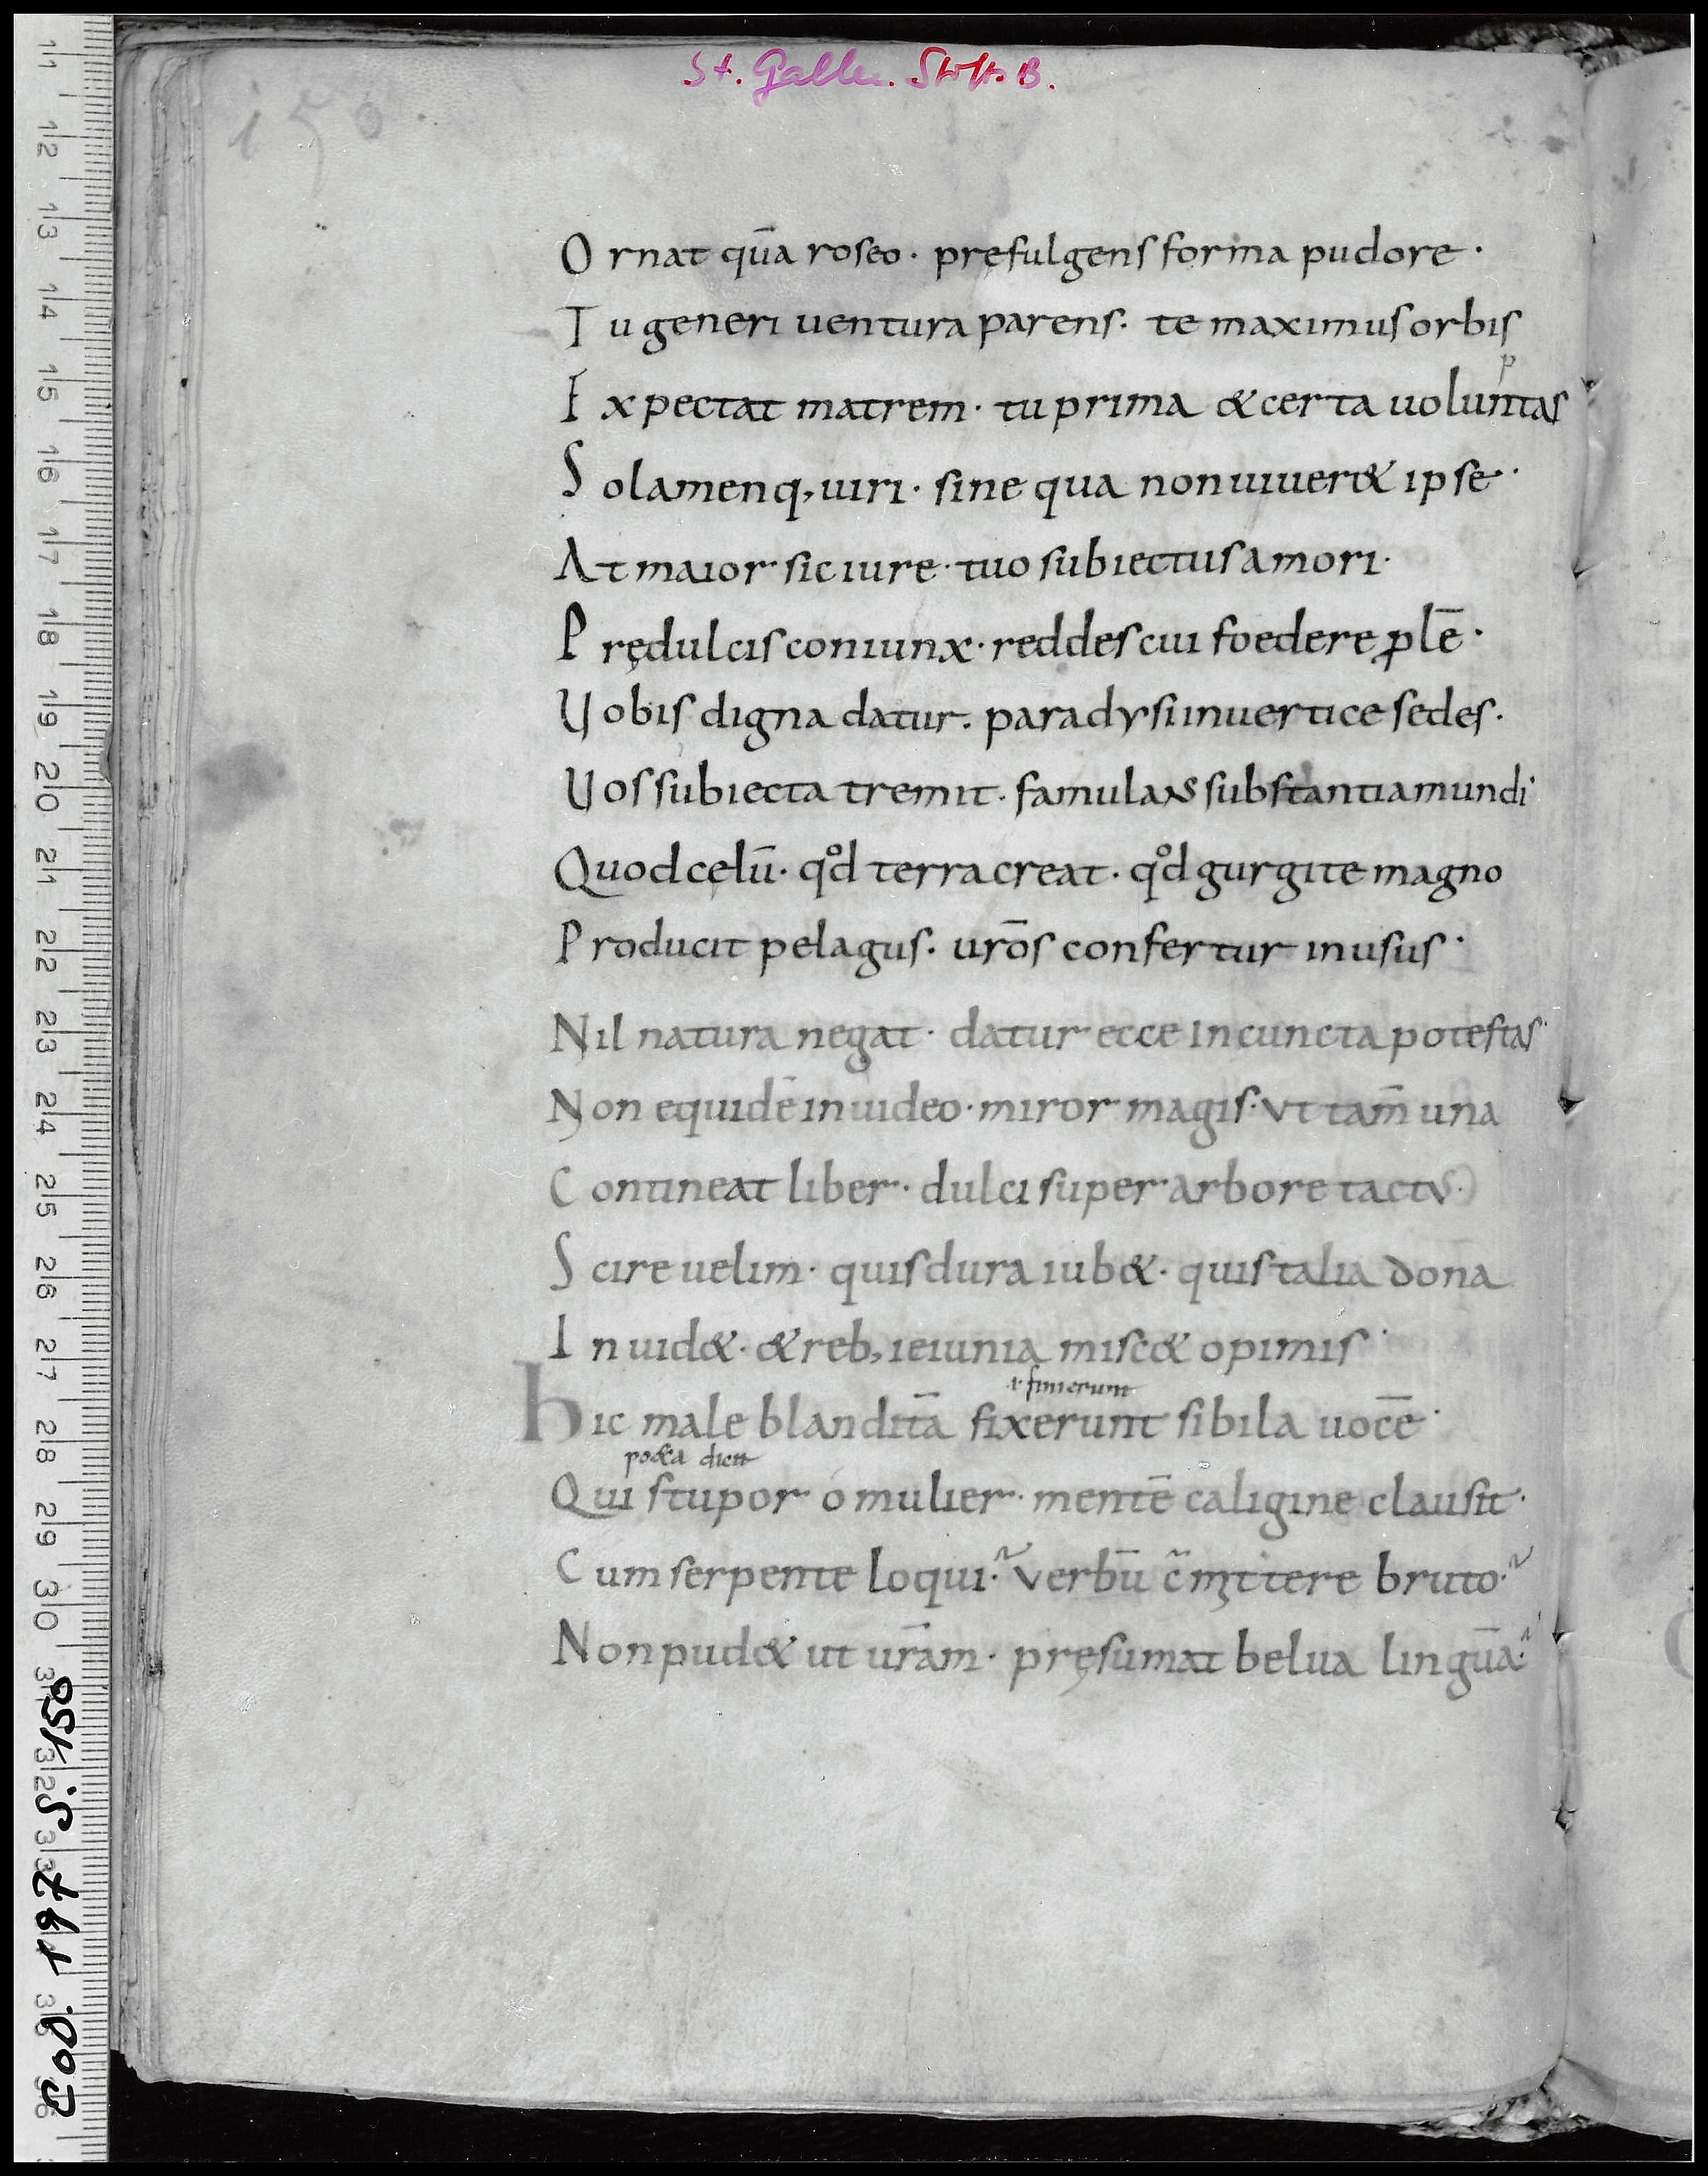 St. Gallen. Stifts B.
150
Ornat quā roseo · pręfulgens forma pudore ·
Tu generi uentura parens · te maximus orbis
p
Expectat matrem · tu prima & certa uoluntas
Solamenq, uiri · sine qua non uiuer& ipse ·
At maior sic iure · tuo subiectus amori ·
Prędulcis coniunx · reddes cui foedere ꝓlē ·
Uobis digna datur · paradysi in uertice sedes ·
Uos subiecta tremit · famulans substantia mundi ·
Quod cęlū · qd̊ terra creat · qd̊ gurgite magno
Producit pelagus · urōs confertur in usus ·
Nil natura negat · datur ecce in cuncta potestas ·
Non equidē inuideo · miror magis · ut tam̄ una
Contineat liber · dulci super arbore tactus ·
Scire uelim · quis dura iub& · quis talia dona
Inuid& · & reb, ieiunia misc& opimis ·
ł finierunt
Hic male blanditā fixerunt sibila uocē ·
po&a dicit
Qui stupor o mulier · mentē caligine clausit ·
Cum serpente loqui · uerbū c̄mittere bruto ·
Non pud& ut ur̄am · pręsumat belua linguā ·
Cod. 197 S. 150
11
12
13
14
15
16
17
18
19
20
21
22
23
24
25
26
27
28
29
30
31
32
33